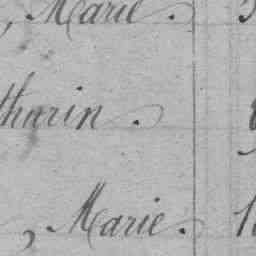 , Marie.
thurin.
, Marie.